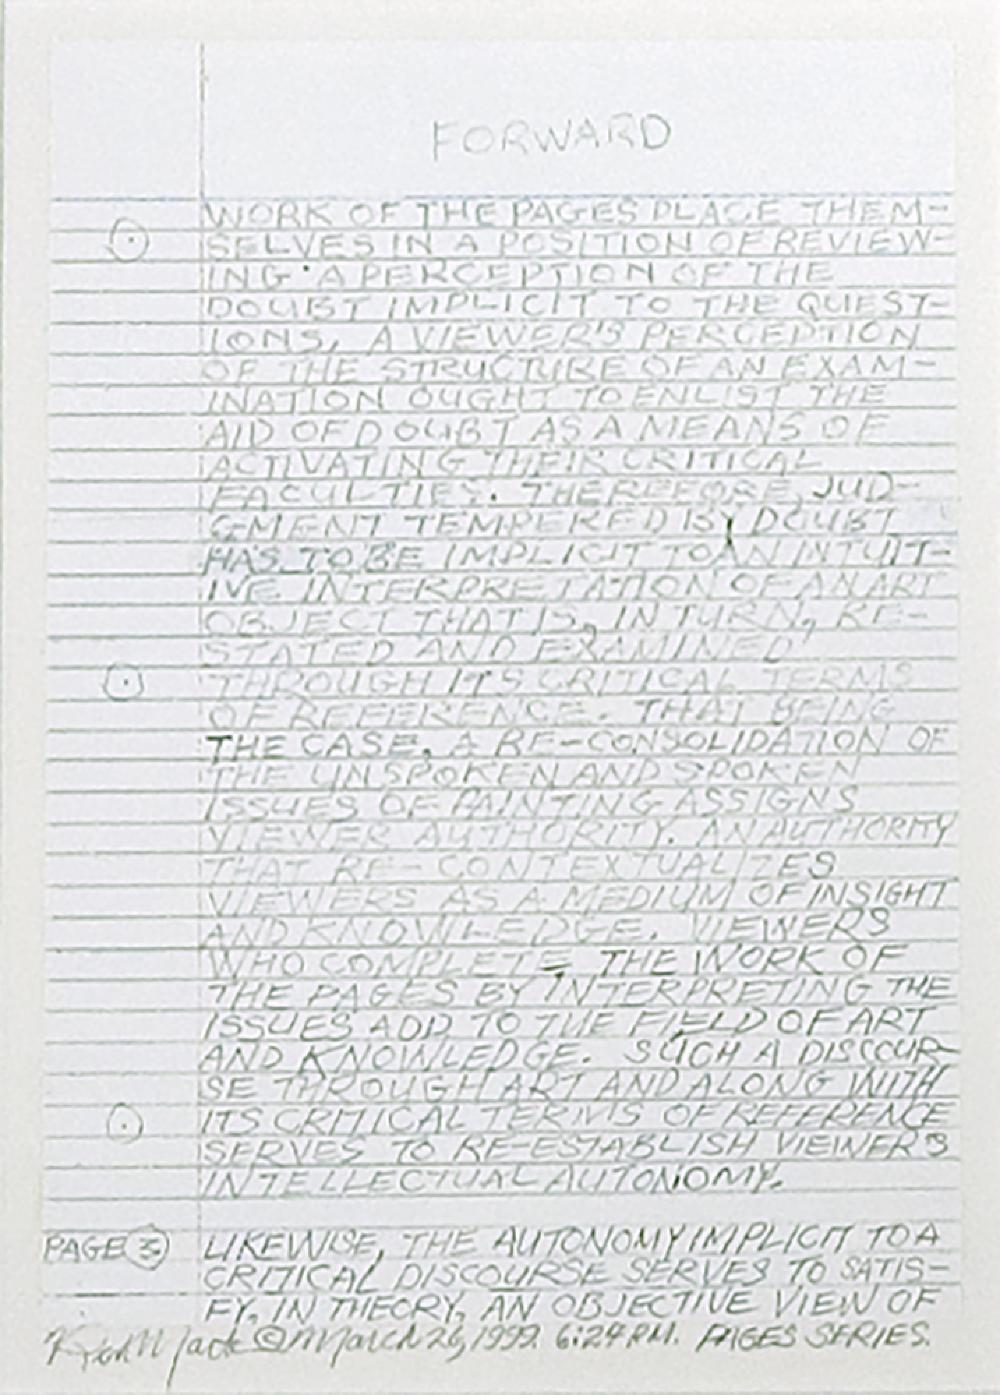 FORWARD
WORK OF THE PAGES PLACE THEM-
SELVES IN A POSITION OF REVIEW-
ING A PERCEPTION OF THE
DOUBT IMPLICIT TO THE QUEST-
IONS, A VIEWER'S PERCEPTION
OF THE STRUCTURE OF AN EXAM-
INATION OUGHT TO ENLIST THE
AID OF DOUBT AS A MEANS OF
ACTIVATING THEIR CRITICAL
FACULTIES. THEREFORE, JUD-
GMENT TEMPERED BY DOUBT
HAS TO BE IMPLICIT TO AN INTUIT-
IVE INTERPRETATION OF AN ART
OBJECT THAT IS, IN TURN, RE-
STATED AND EXAMINED
THROUGH ITS CRITICAL TERMS
OF REFERENCE. THAT BEING
THE CASE, A RE-CONSOLIDATION OF
THE UNSPOKEN AND SPOKEN
ISSUES OF PAINTING ASSIGNS
VIEWER AUTHORITY. AN AUTHORITY
THAT RE-CONTEXTUALIZES
VIEWERS AS A MEDIUM OF INSIGHT
AND KNOWLEDGE. VIEWERS
WHO COMPLETE, THE WORK OF
THE PAGES BY INTERPRETING THE
ISSUES ADD TO THE FIELD OF ART
AND KNOWLEDGE. SUCH A DISCOUR-
SE THROUGH ART AND ALONG WITH
ITS CRITICAL TERMS OF REFERENCE
SERVES TO RE-ESTABLISH VIEWER'S
INTELLECTUAL AUTONOMY.
PAGE 3. LIKEWISE, THE AUTONOMY IMPLICIT TO A
CRITICAL DISCOURSE SERVES TO SATIS-
FY, IN THEORY, AN OBJECTIVE VIEW OF
© March 26, 1999. 6:29 P.M. PAGES SERIES.